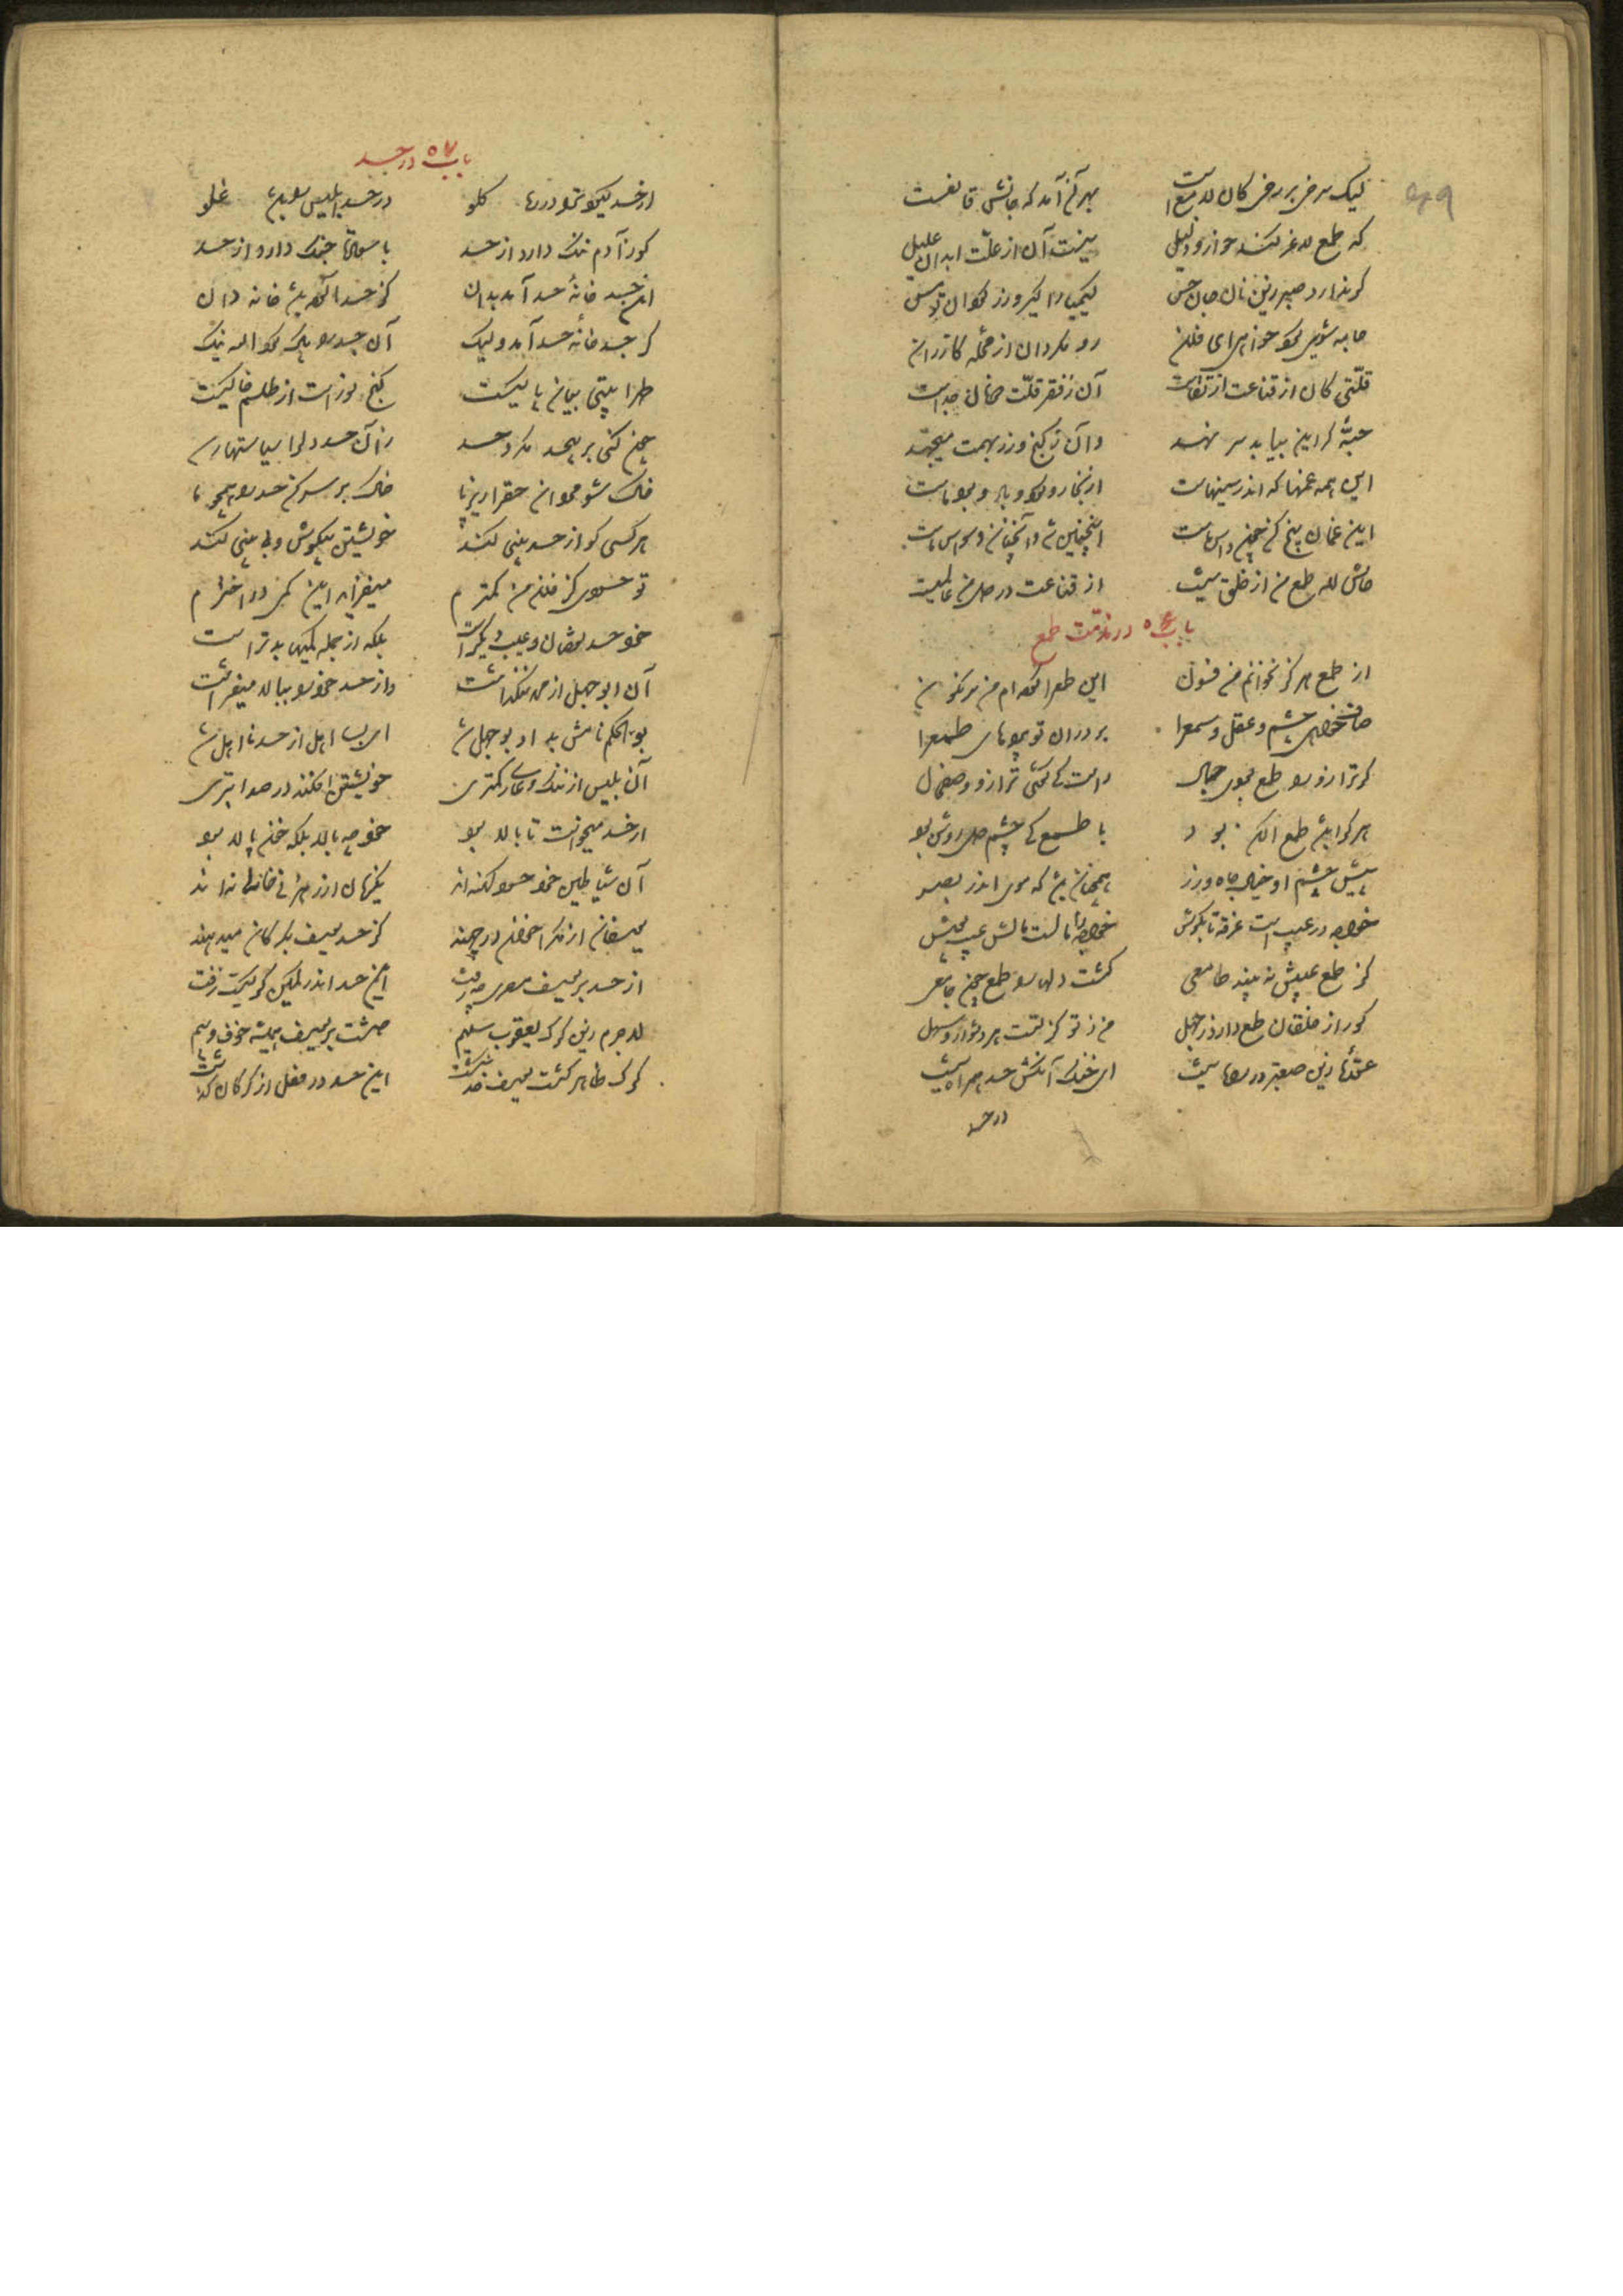 لیک سرخی بر رخی کان لامع است	بهر آن آمد که جانش قانعست
که طمع لاغر کند خوار و ذلیل	نیست آن از علت ابدان علیل
گر ندارد صبر زین نان جان حس	کیمیا را گیر و زر گردان تو مس
جامه شویی کرد خواهی ای فلان	رو مگردان از محله گازران
قلتی کان از قناعت از تقاست	آن ز فقر قلت دونان جداست
حبه گر این بیابد سر نهد	وان ز گنج زر بهمت میجهد
این همه غمها که اندر سینهاست	از بخار و گرد باد و بود ماست
این غمان بیخ کن چون داس ماست	این چنین شد و آنچنان وسواس ماست
حاش لله طمع من از خلق نیست	از قناعت در دل من عالمیست
باب ۵۶ در مذمت طمع
از طمع هرگز نخوانم من فسون	این طمع را کرده‌ام من سرنگون
صاف خواهی چشم و عقل و سمع را	بر دران تو پرده‌های طمع را
گر ترازو را طمع بودی بمال	راست کی گفتی ترازو وصف حال
هر کرا باشد طمع الکن بود	با طمع کی چشم دل روشن بود
پیش چشم او خیال جاه و زر	همچنان باشد که موی اندر بصر
خواجه در عیب است غرقه تا بگوش	خواجه را مال است و مالش عیب پوش
کز طمع عیبش نه بیند طامعی	گشت دلها را طمع چون جامعی
کور از خلقان طمع دارد ز جهل	من ز تو کز تست هر دشوار سهل
عقبهٔ زین صعبتر در راه نیست	ای خنک آنکش حسد همراه نیست
در حسد
باب ۵۷ در حسد
از حسد گیرد ترا در ره گلو	در حسد ابلیس را باشد غلو
کو ز آدم ننگ دارد از حسد	با سعادت جنگ دارد از حسد
این جسد خانهٔ حسد آمد بدان	کز حسد آلوده باشد خاندان
گر جسد خانهٔ حسد آمد ولیک	آن جسد را پاک کرد الله نیک
طهرا بیتی بیان پاکیست	گنج نور است از طلسمش خاکیست
چون کنی بر بیحسد مکر و حسد	زان حسد دل را سیاهیها رسد
خاک شو مردان حق را زیر پا	خاک بر سر کن حسد را همچو ما
هر کسی کو از حسد بینی کند	خویشتن بی گوش و بی بینی کند
تو حسودی کز فلان من کمترم	میفزاید این کمی در اخترم
خود حسد نقصان و عیب دیگر است	بلکه از جمله کمیها بدتر است
آن ابوجهل از محمد ننگ داشت	وز حسد خود را ببالا میفراشت
بوالحکم نامش بد او بوجهل شد	ای بسا اهل از حسد نا اهل شد
آن بلیس از ننگ و عار کمتری	خویشتن افکند در صد ابتری
از حسد میخواست تا بالا بود	خود چه بالا بلکه خون پالا بود
آن شیاطین خود حسود کهنه‌اند	یکزمان از رهزنی خالی نه‌اند
یوسفان از مکر اخوان در چهند	کز حسد یوسف بگرگان میدهند
از حسد بر یوسف مصری چه رفت	این حسد اندر کمین گرگیست زفت
لاجرم زین گرگ یعقوب سلیم	داشت بر یوسف همیشه خوف و بیم
گرگ ظاهر گرد یوسف خود نگشت	این حسد در فعل از گرگان گذشت